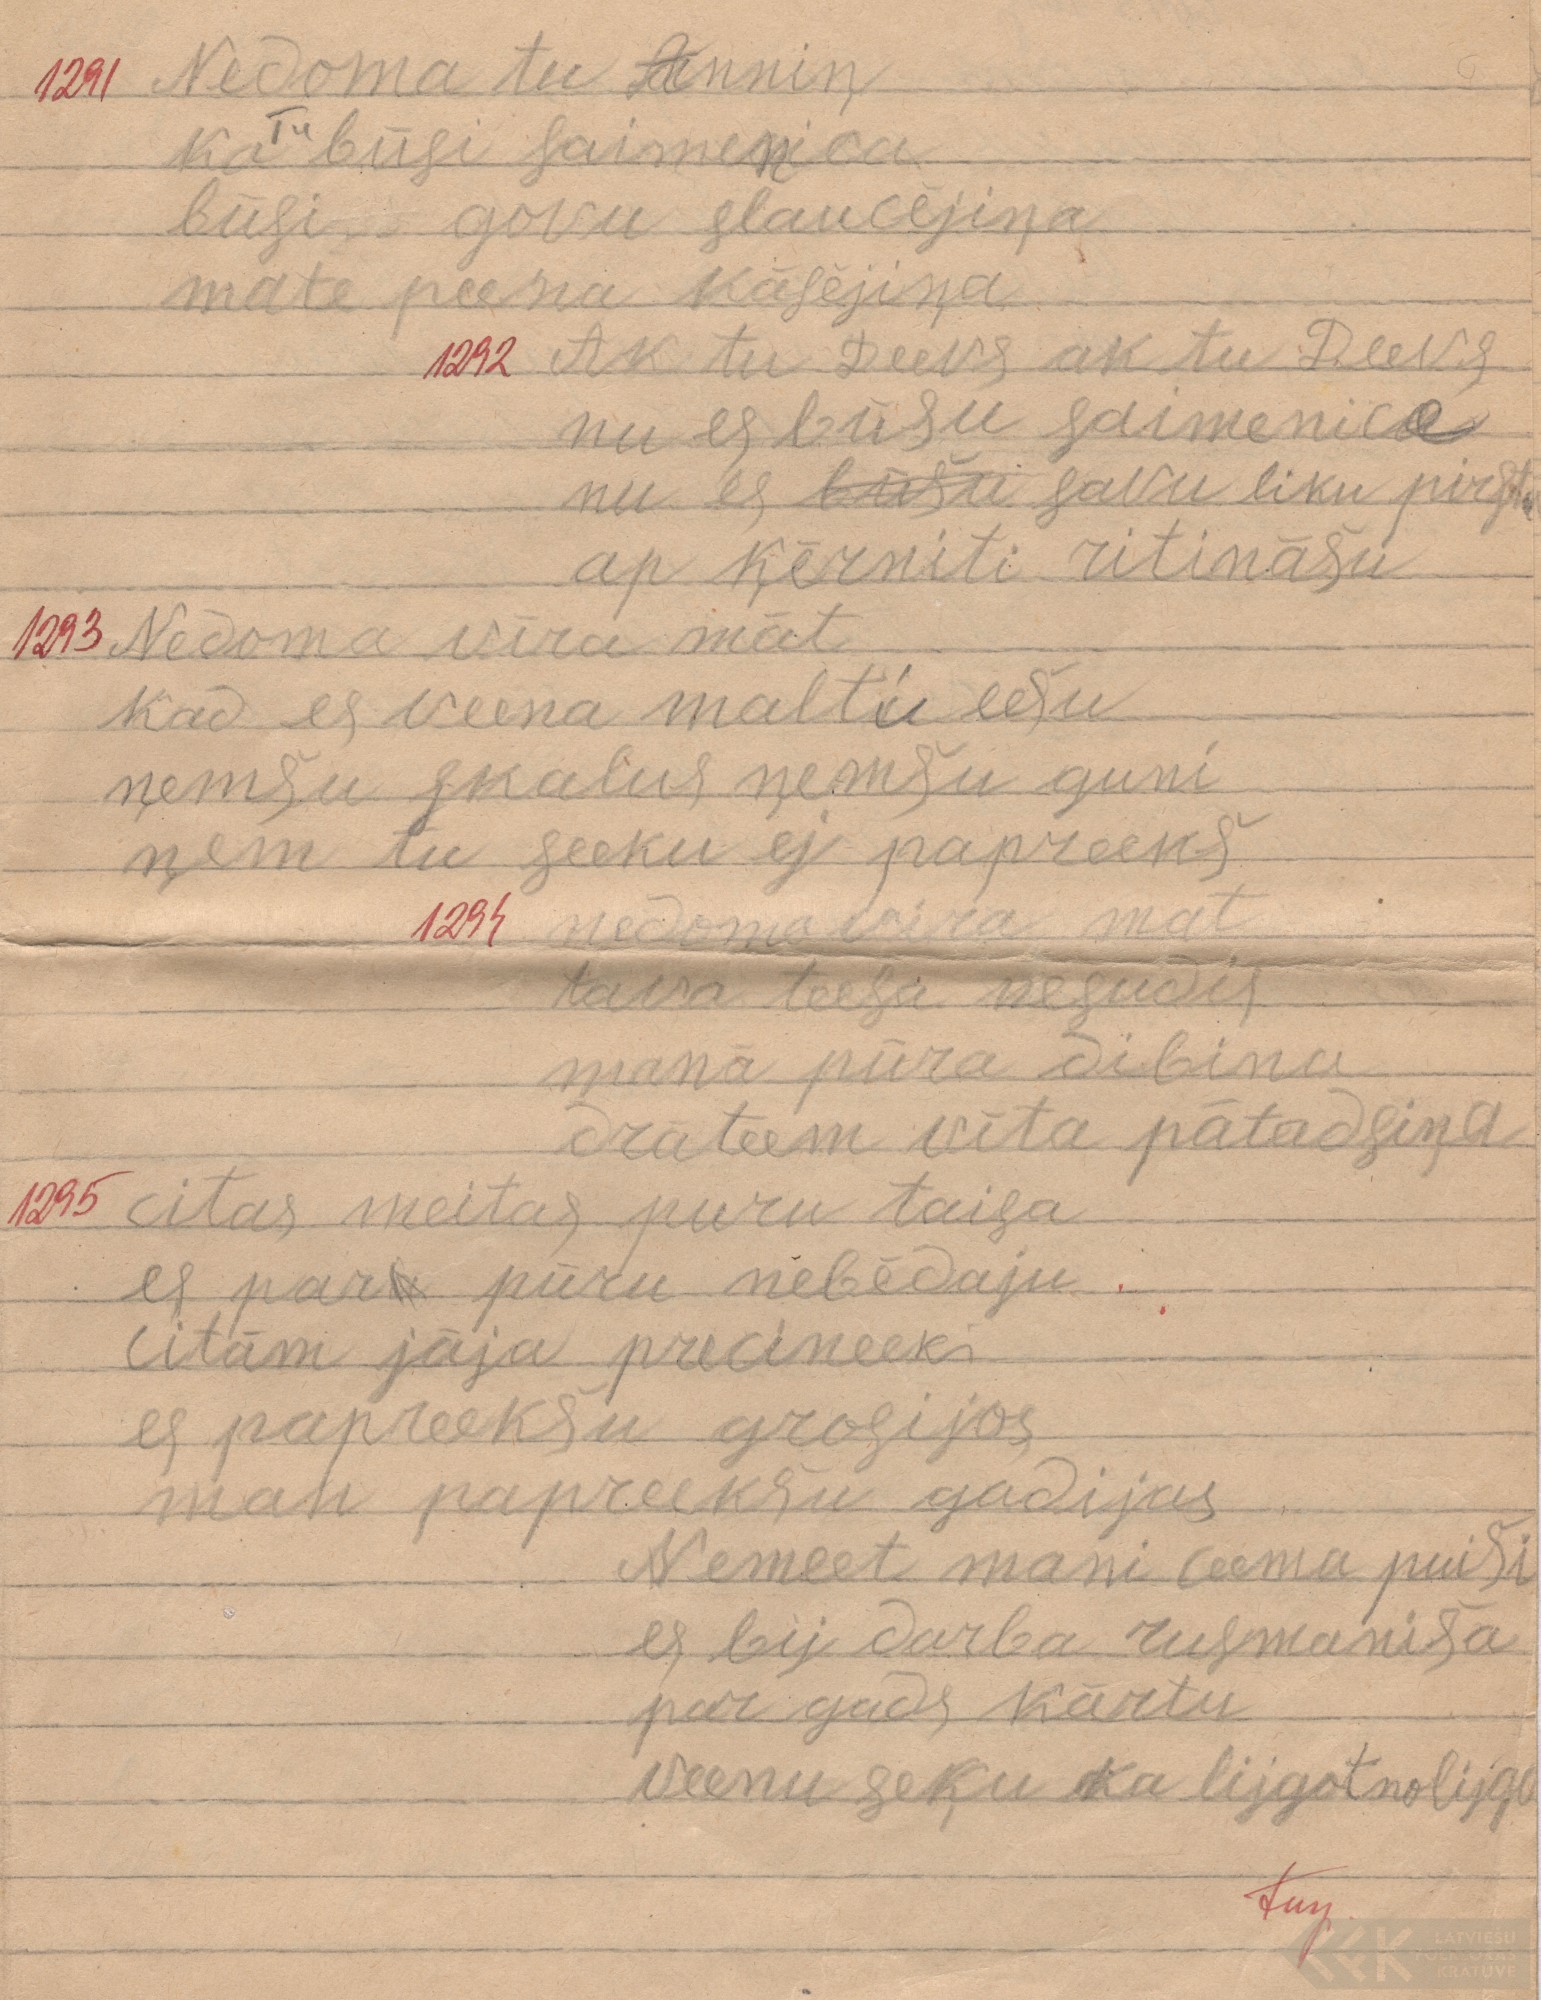 1291 Nedoma tu Anniņ
ka Tu būsi saimenica
būsi govu slaucējiņa
mate peena kāsējiņa
1292 Ak tu Deevs ak tu Deevs
nu es būsu saimenice
nu es būšu savu liku pirstu
ap ķērniti ritināšu
1293 Nedoma vīra māt
kad es veena maltu eešu
ņemšu skalus ņemšu guni
ņem tu seeku ej papreekš
1294 nedoma vira mat
tava teesa nesudis
manā pūra dibina
drāteem vīta pātadsiņa
1295 citas meitas puru taisa
es par pūru nebēdaju
citām jāja precineeki
es papreekšu grosijos
man papreekšu gadijas
Nemeet mani ceema puiši
es bij darba rusmaniša
par gads kārtu
veenu seķu ka lijgot nolijgo
LATVIEŠU
FOLKLORAS
KRĀTUVE